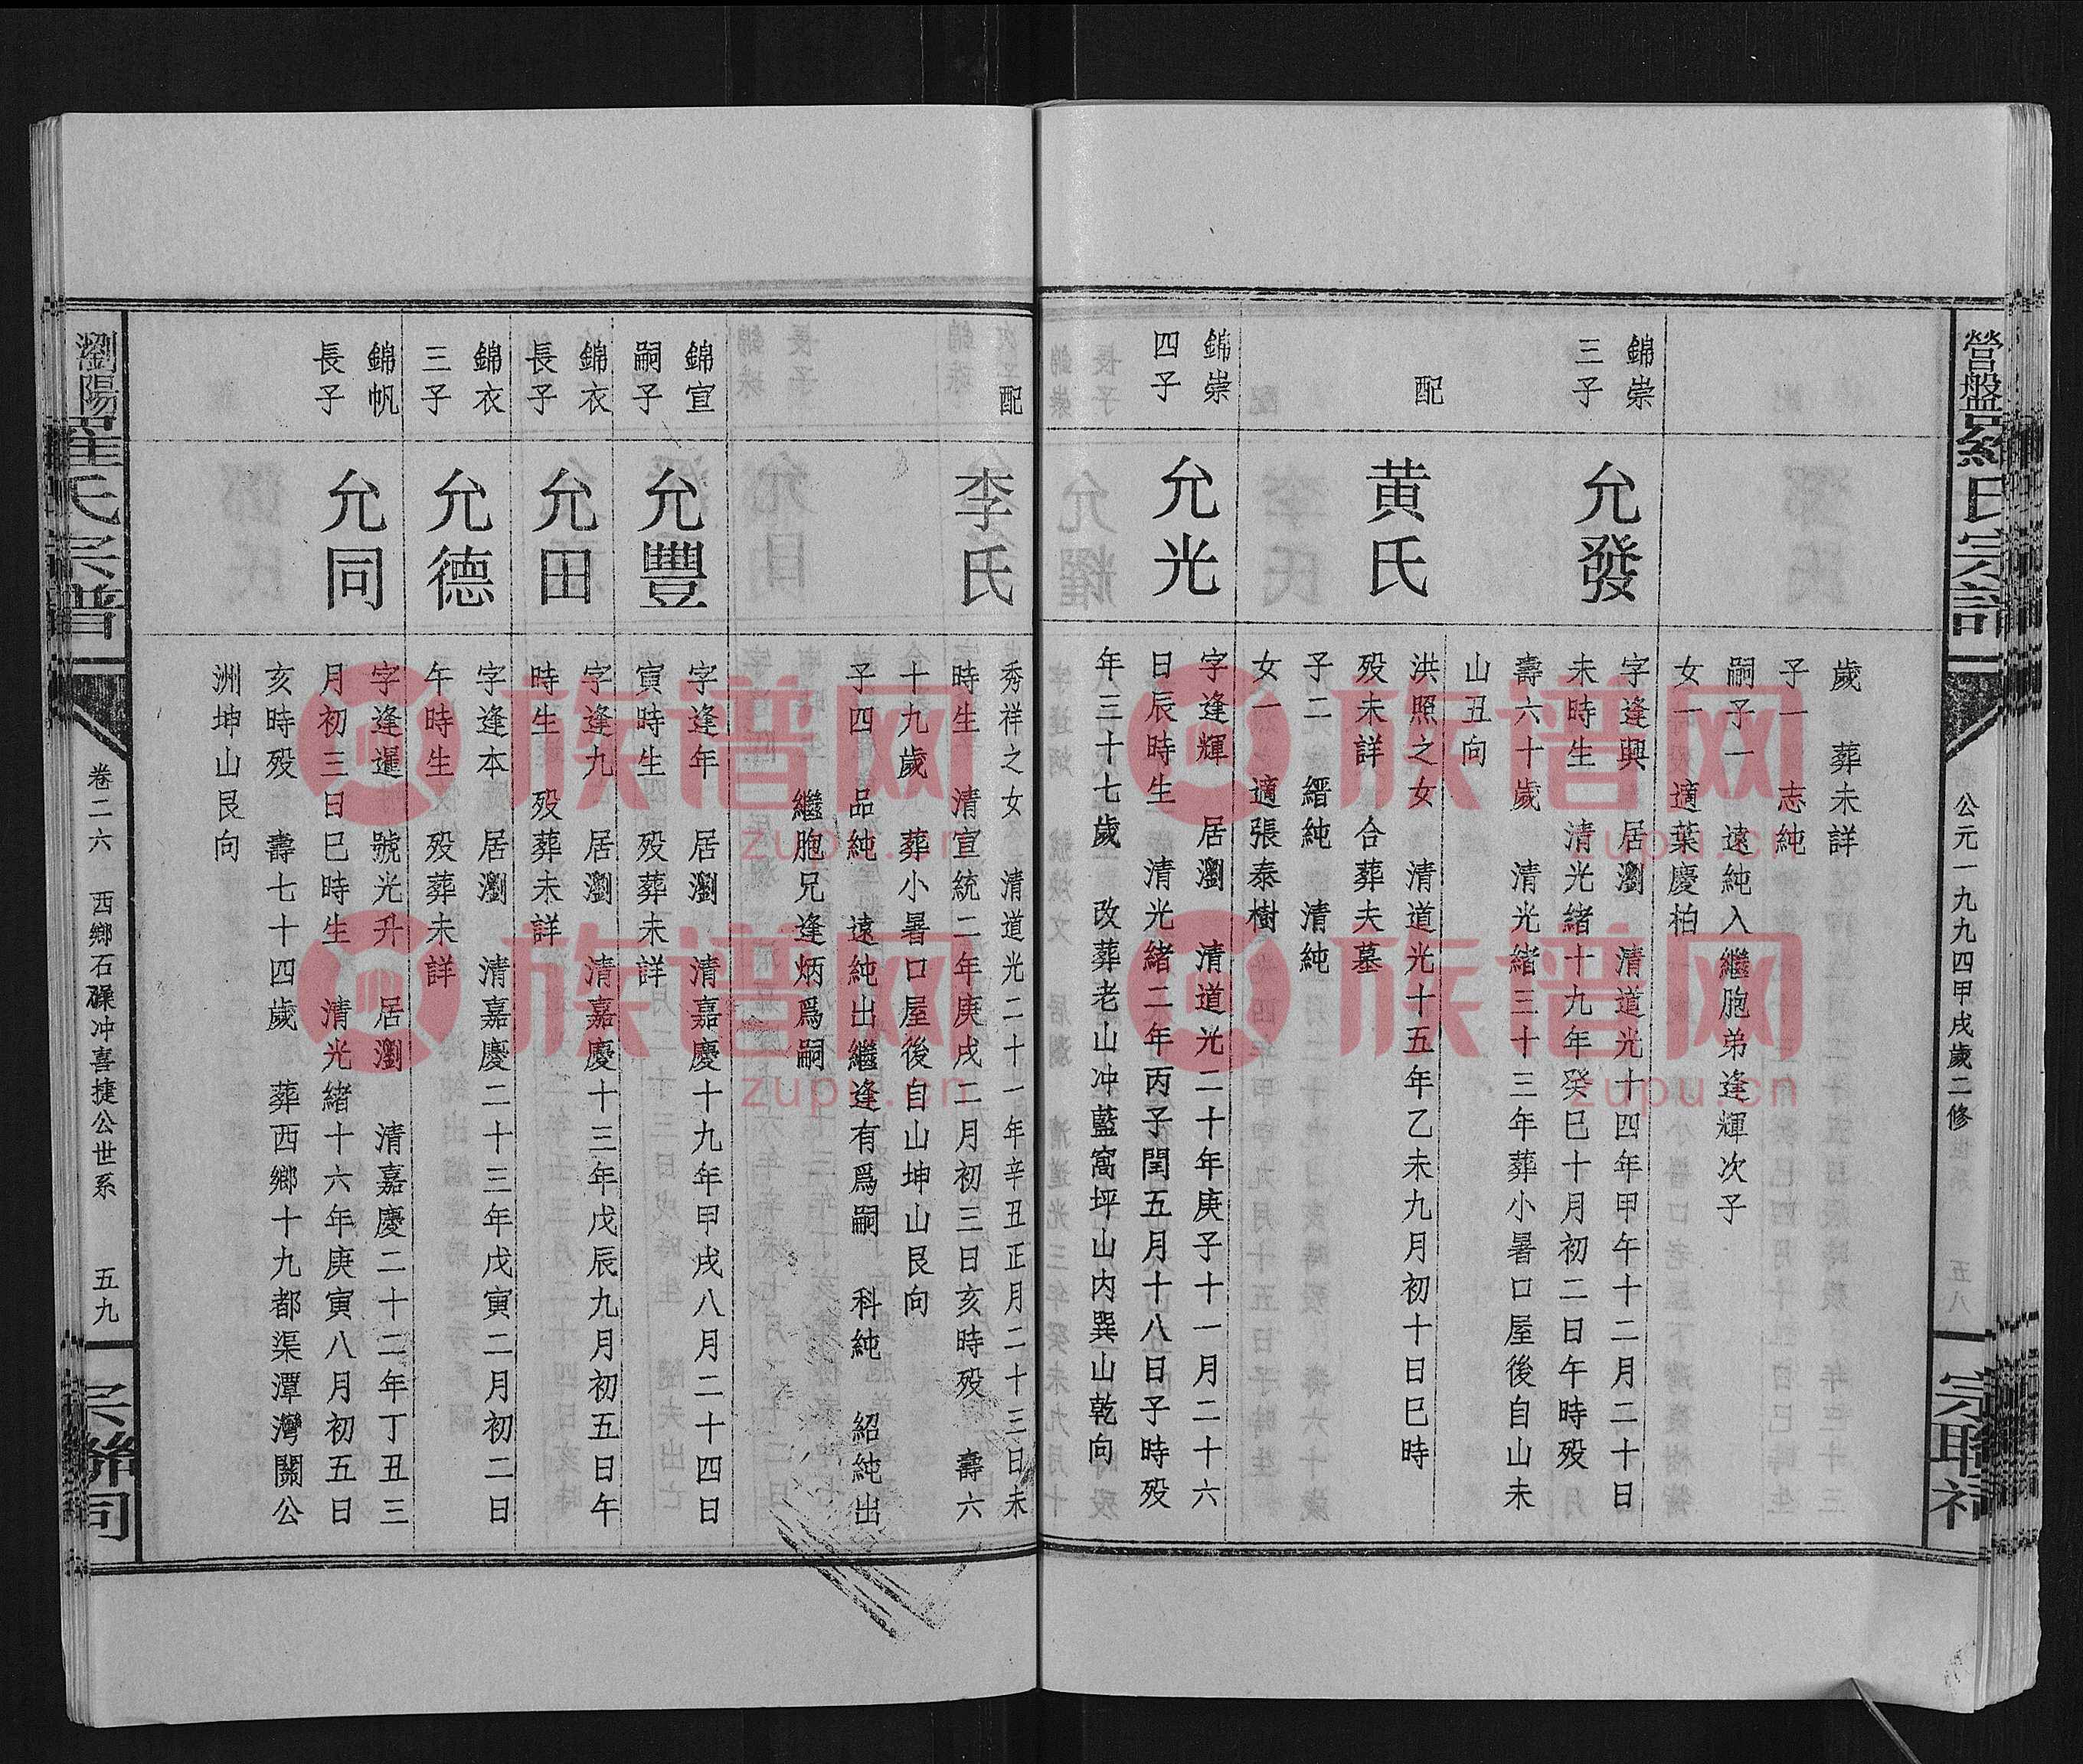 營盤羅氏宗譜
公元一九九四甲戌歲二修
五八
宗聯祠
歲 葬未詳
子一 志純
嗣子一 遠純入繼胞弟逢輝次子
女一 適葉慶柏
錦崇
三子
允發
字逢興 居瀏 清道光十四年甲午十二月二十日
未時生 清光緒十九年癸巳十月初二日午時殁
壽六十歲 清光緒三十三年葬小暑口屋後自山未
山丑向
配
黄氏
洪照之女 清道光十五年乙未九月初十日巳時
殁未詳 合葬夫墓
子二 縉純 清純
女一 適張泰樹
錦崇
四子
允光
字逢輝 居瀏 清道光二十年庚子十一月二十六
日辰時生 清光緒二年丙子閏五月十八日子時殁
年三十七歲 改葬老山冲藍窩坪山内巽山乾向
配
李氏
秀祥之女 清道光二十一年辛丑正月二十三日未
時生 清宣統二年庚戌二月初三日亥時殁 壽六
十九歲 葬小暑口屋後自山坤山艮向
子四 品純 遠純出繼逢有爲嗣 科純 紹純出
繼胞兄逢炳爲嗣
錦宣
嗣子
允豐
字逢年 居瀏 清嘉慶十九年甲戌八月二十四日
寅時生 殁葬未詳
錦衣
長子
允田
字逢九 居瀏 清嘉慶十三年戊辰九月初五日午
時生 殁葬未詳
錦衣
三子
允德
字逢本 居瀏 清嘉慶二十三年戊寅二月初二日
午時生 殁葬未詳
錦帆
長子
允同
字逢暹 號光升 居瀏 清嘉慶二十二年丁丑三
月初三日巳時生 清光緒十六年庚寅八月初五日
亥時殁 壽七十四歲 葬西鄉十九都渠潭灣關公
洲坤山艮向
瀏陽羅氏宗譜
卷二六 西鄉石磥冲喜捷公世系
五九
宗聯祠
族谱网
zupu.cn
族谱网
zupu.cn
族谱网
zupu.cn
族谱网
zupu.cn